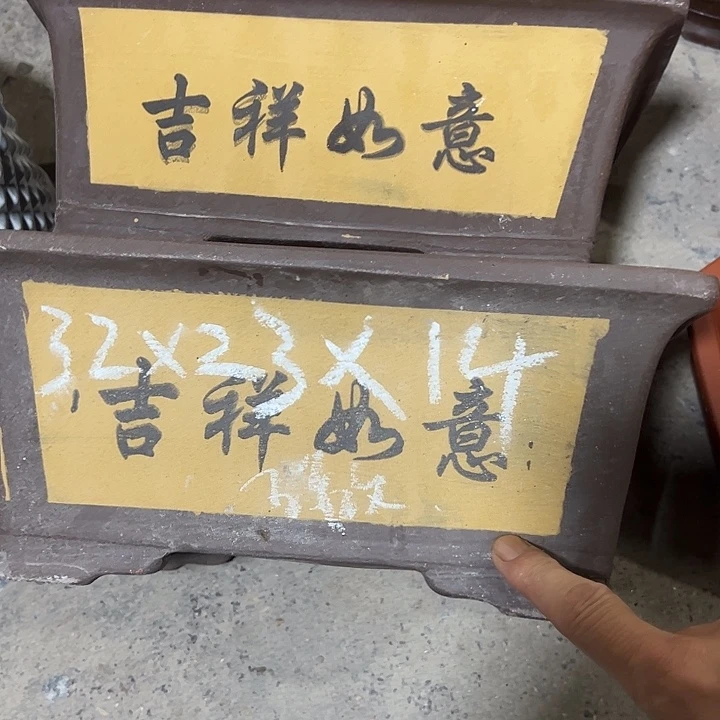 吉祥如意
32x23x14
吉祥如意